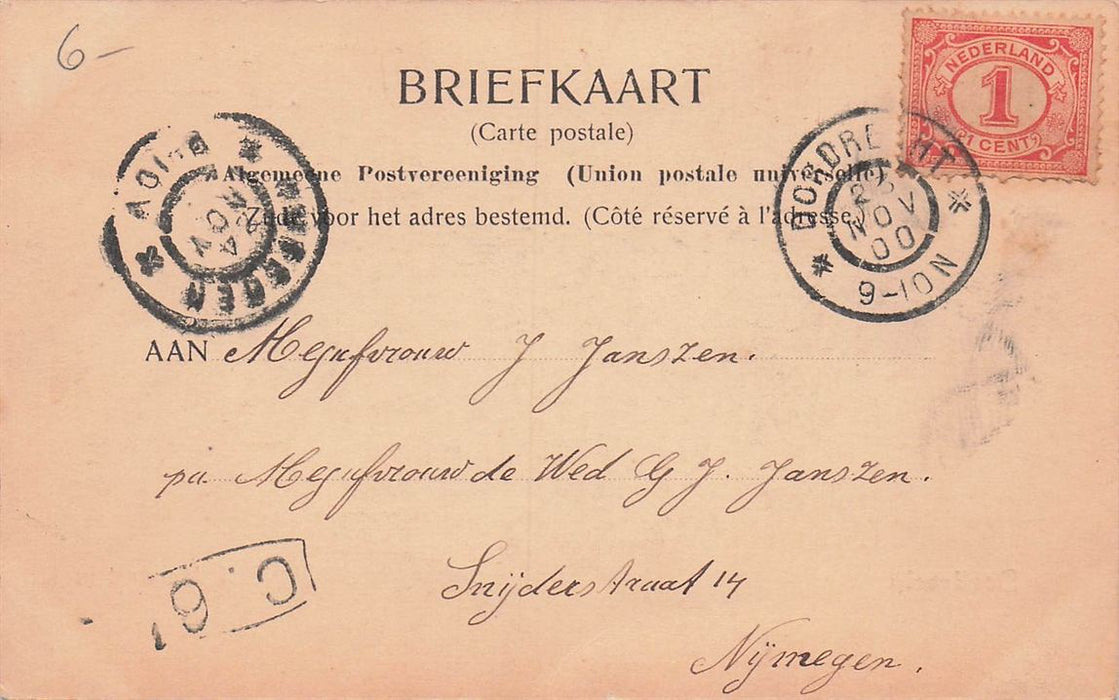 6-
NEDERLAND
1
1 CENT
BRIEFKAART
(Carte postale)
Algemeene Postvereeniging (Union postale universelle)
Zijde voor het adres bestemd. (Côté réservé à l'adresse.)
DORDRECHT
NOV
00
9-10N
4
NOV
AAN Mejufvrouw J Janszen.
pa. Mejufvrouw de Wed G J. Janszen.
Snijderstraat 14
Nijmegen.
C. 6